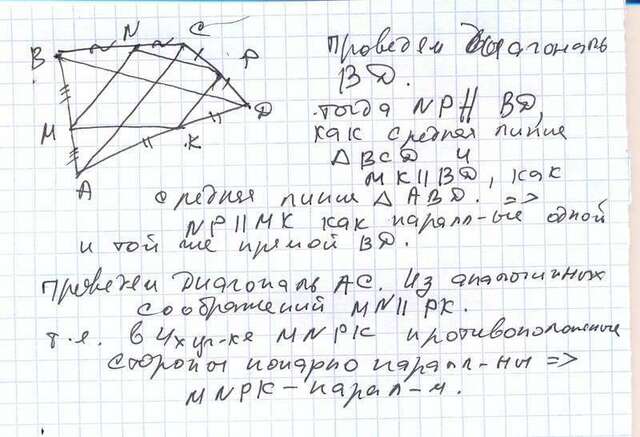 B N C P D M K A
Проведем диагональ
BD.
тогда NP ∥ BD,
как средняя линия
△ BCD и
MK ∥ BD, как
средняя линия △ ABD. =>
NP ∥ MK как паралл-ые одной
и той же прямой BD.
Проведем диагональ AC. Из аналогичных
соображений MN ∥ PK.
т.е. в 4х уг-ке MNPK противоположные
стороны попарно паралл-ны =>
MNPK - парал-м.